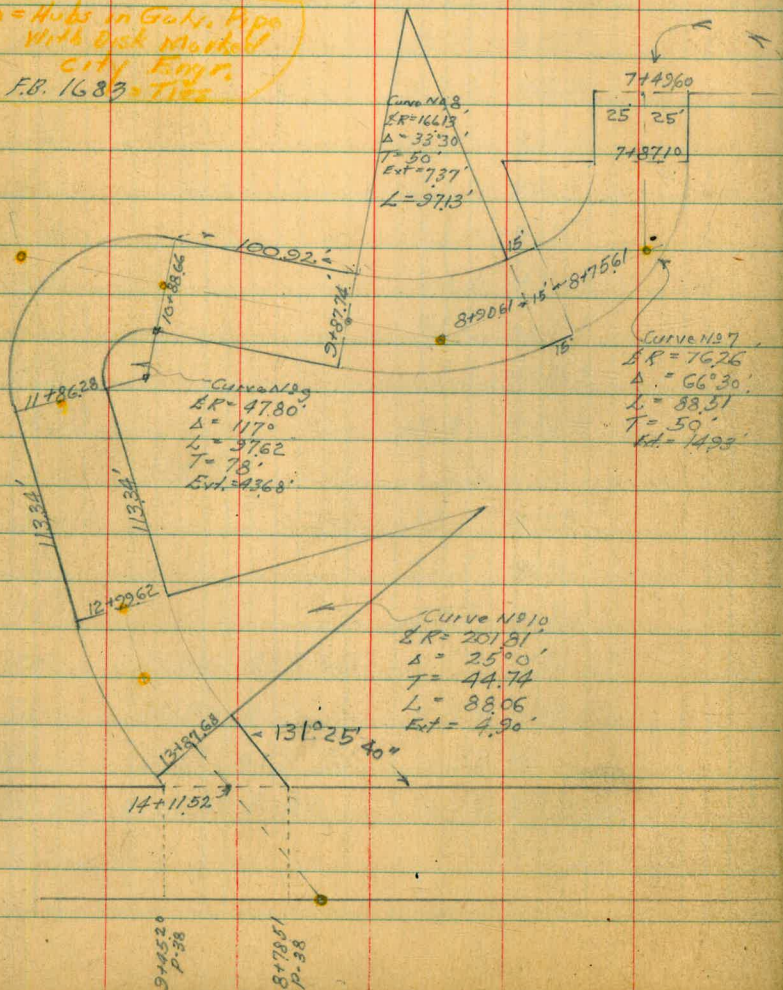 = Hubs in Galv. Pipe
With Disk Marked
City Engr.
F.B. 1683 = Ties
7+4960
25' 25'
7+8710
Curve No 8
R=166.13'
Δ = 33°30'
T = 50'
Ext = 7.37'
L = 97.13'
100.92'
10+88.66
9+87.74
15'
8+90.61
15'
8+75.61
15'
Curve No 7
R = 76.26
Δ = 66°30'
L = 88.51
T = 50'
Ext. = 14.93'
11+86.28
Curve No 9
R = 47.80'
Δ = 117°
L = 97.62
T = 78'
Ext. = 43.68'
113.34'
113.34'
12+99.62
Curve No 10
R = 201.81'
Δ = 25°0'
T = 44.74
L = 88.06
Ext = 4.90'
13+87.68
131° 25' 40"
14+11.52
9+45.20
P-38
8+78.51
P-38